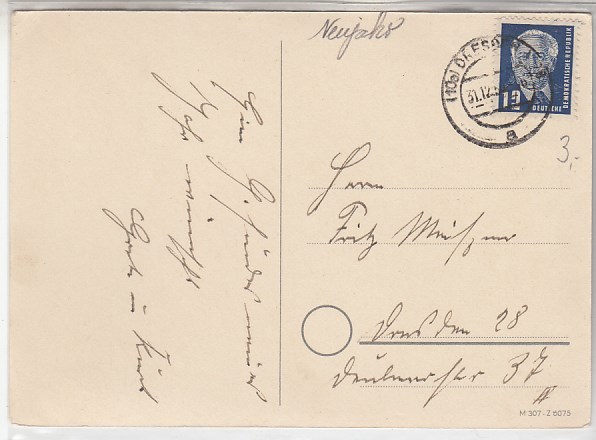 Neujahr
(10a) DRESDEN
31.12.5
a
12
DEUTSCHE
DEMOKRATISCHE REPUBLIK
3,-
Ein gesundes neues
Jahr wünscht
Grete u Kurt
Herrn
Fritz
Dresden 28
37
M 307 - Z 6075